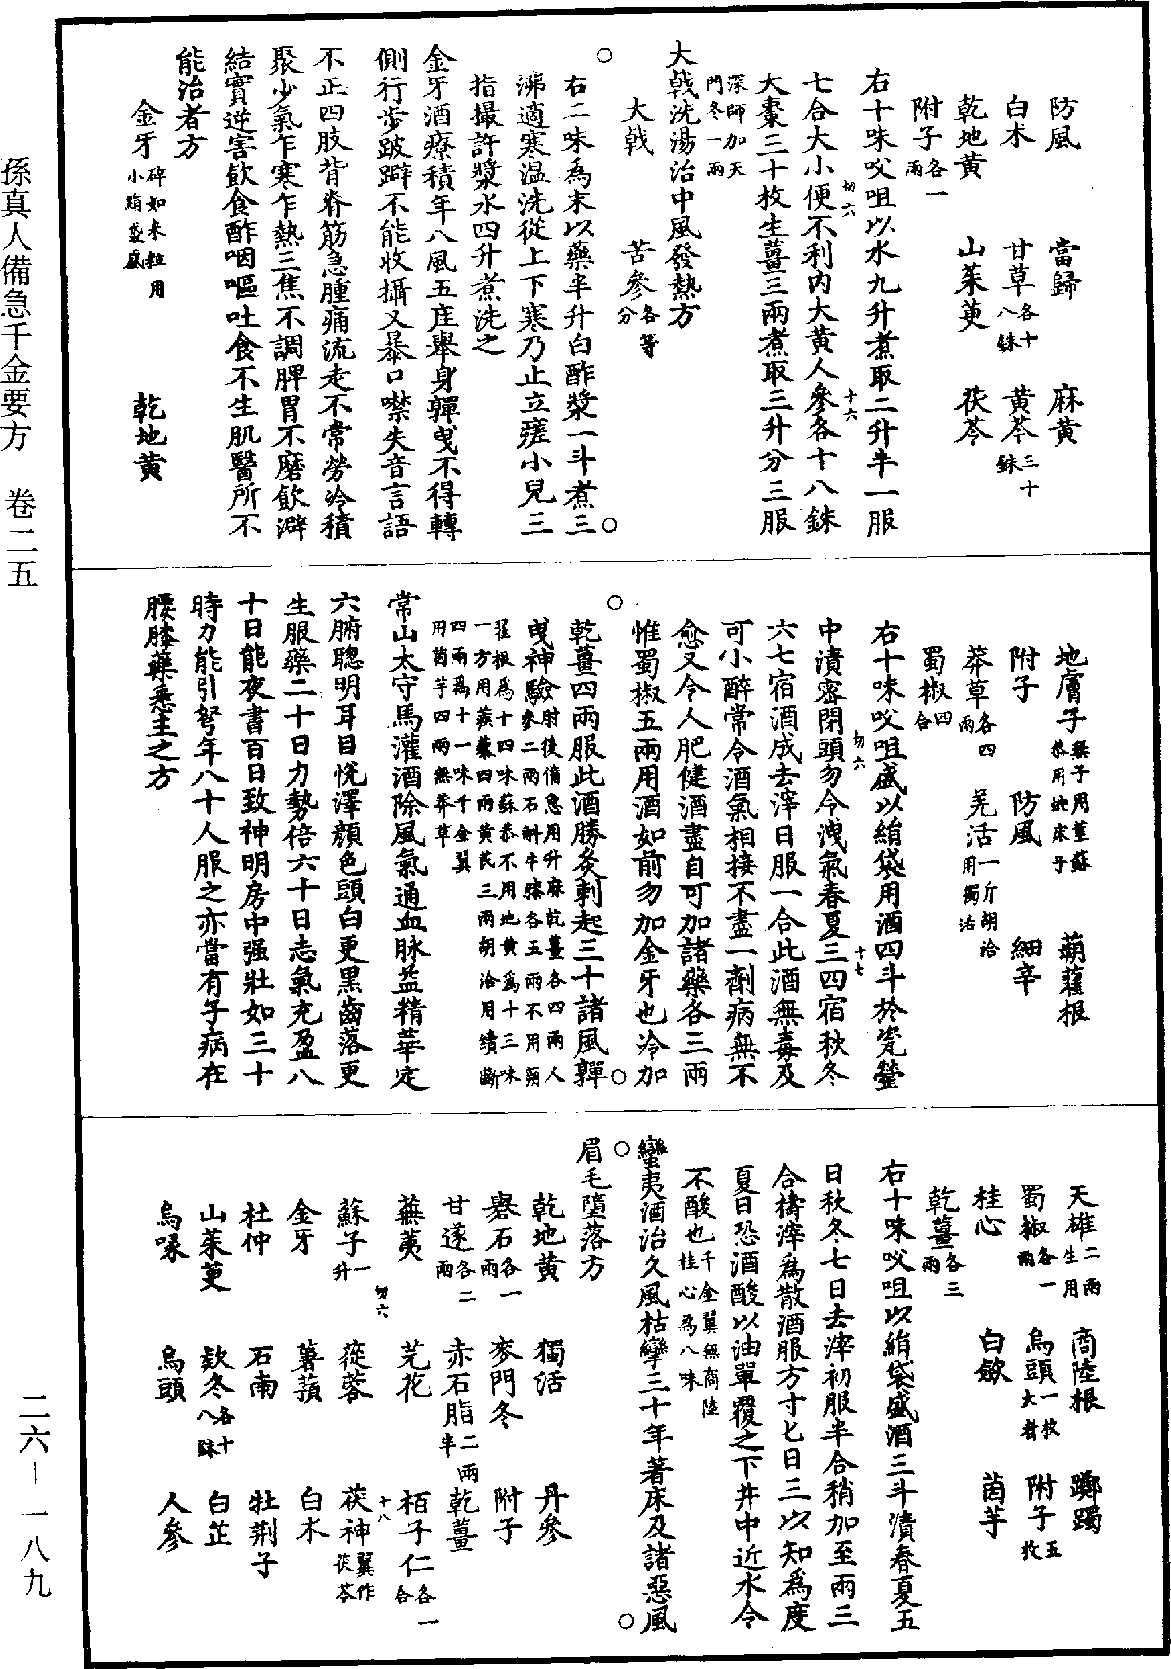 防風　當歸　麻黃
白木　甘草各十八銖　黃芩三十銖
乾地黃　山茱萸　茯苓
附子各一兩
右十味㕮咀以水九升煮取二升半一服
七合大小便不利內大黃人參各十八銖
大棗三十枚生薑三兩煮取三升分三服
深師加天門冬一兩
大戟洗湯治中風發熱方
大戟　苦參各等分
右二味為末以藥半升白酢漿一斗煮三
沸適寒溫洗從上下寒乃止立瘥小兒三
指撮許漿水四升煮洗之
金牙酒療積年八風五疰舉身嚲曳不得轉
側行步跛躃不能收攝又暴口噤失音言語
不正四肢背脊筋急腫痛流走不常勞冷積
聚少氣乍寒乍熱三焦不調脾胃不磨飲澼
結實逆害飲食酢咽嘔吐食不生肌醫所不
能治者方
金牙碎如米粒用小絹袋盛　乾地黃
地膚子無子用莖蘇恭用蛇床子　蒴藋根
附子　防風　細辛
莽草各四兩　羌活一斤胡洽用獨活
蜀椒四合
右十味㕮咀盛以絹袋用酒四斗於瓷甖
中漬密閉頭勿令洩氣春夏三四宿秋冬
六七宿酒成去滓日服一合此酒無毒及
可小醉常令酒氣相接不盡一劑病無不
愈又令人肥健酒盡自可加諸藥各三兩
惟蜀椒五兩用酒如前勿加金牙也冷加
乾薑四兩服此酒勝灸刺起三十諸風嚲
曳神驗肘後備急用升麻乾薑各四兩人參二兩石斛牛膝各五兩不用蒴
藋根為十四味蘇恭不用地黃為十三味
一方用蒺藜四兩黃芪三兩胡洽用續斷
四兩為十一味千金翼
用茵芋四兩無莽草
常山太守馬灌酒除風氣通血脉益精華定
六腑聰明耳目悅澤顏色頭白更黑齒落更
生服藥二十日力勢倍六十日志氣充盈八
十日能夜書百日致神明房中强壯如三十
時力能引弩年八十人服之亦當有子病在
腰膝藥悉主之方
天雄二兩生用　商陸根　躑躅
蜀椒各一兩　烏頭一枚大者　附子五枚
桂心　白歛　茵芋
乾薑各三兩
右十味㕮咀以絹袋盛酒三斗漬春夏五
日秋冬七日去滓初服半合稍加至兩三
合擣滓為散酒服方寸匕日三以知為度
夏日恐酒酸以油單覆之下井中近水令
不酸也千金翼無商陸桂心為八味
蠻夷酒治久風枯攣三十年著床及諸惡風
眉毛墮落方
乾地黃　獨活　丹參
礜石各一兩　麥門冬　附子
甘遂各二兩　赤石脂二兩半　乾薑
蕪荑　芫花　栢子仁各一合
蘇子一升　蓯蓉　茯神翼作茯苓
金牙　薯蕷　白木
杜仲　石南　牡荆子
山茱萸　欵冬各十八銖　白芷
烏喙　烏頭　人參
孫真人備急千金要方　卷二五
二六－一八九
初六
十六
初六
十七
初六
十八